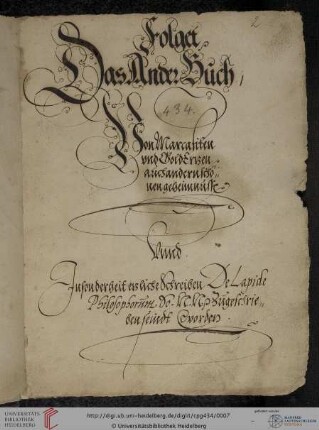 2
Folget
Das Ander Buch,
434.
Von Marcasiten
vnd Gold Ertzen
auch andern schö-
nen geheimnüsse
Vund
Insonderheit etzliche Schreiben De Lapide
Philosophorum So
ben seindt Worden
UNIVERSITÄTS-
BIBLIOTHEK
HEIDELBERG
http://digi.ub.uni-heidelberg.de/diglit/cpg434/0007
© Universitätsbibliothek Heidelberg